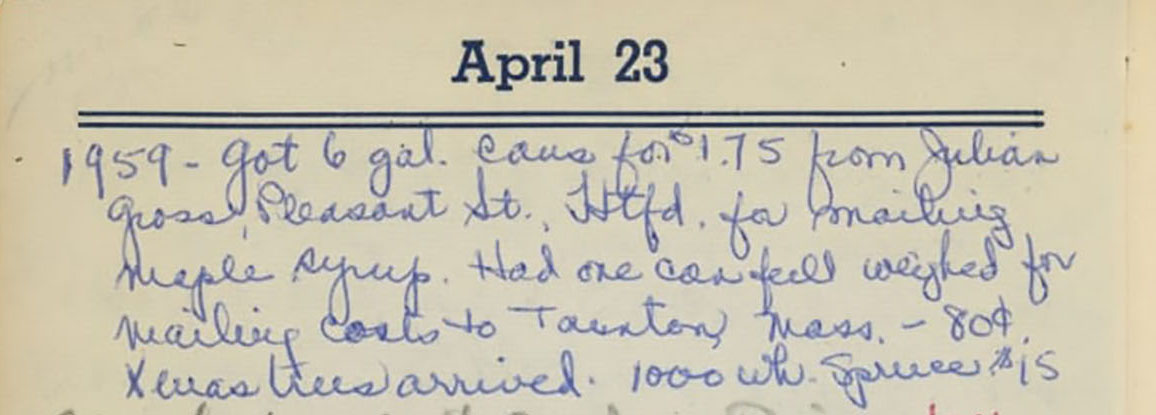 April 23
1959 - Got 6 gal. cans for $1.75 from Julian
Gross, Pleasant St., Htfd. for mailing
maple syrup. Had one can full weighed for
mailing costs to Taunton, Mass. - 80¢.
Xmas trees arrived. 1000 wh. Spruce $15